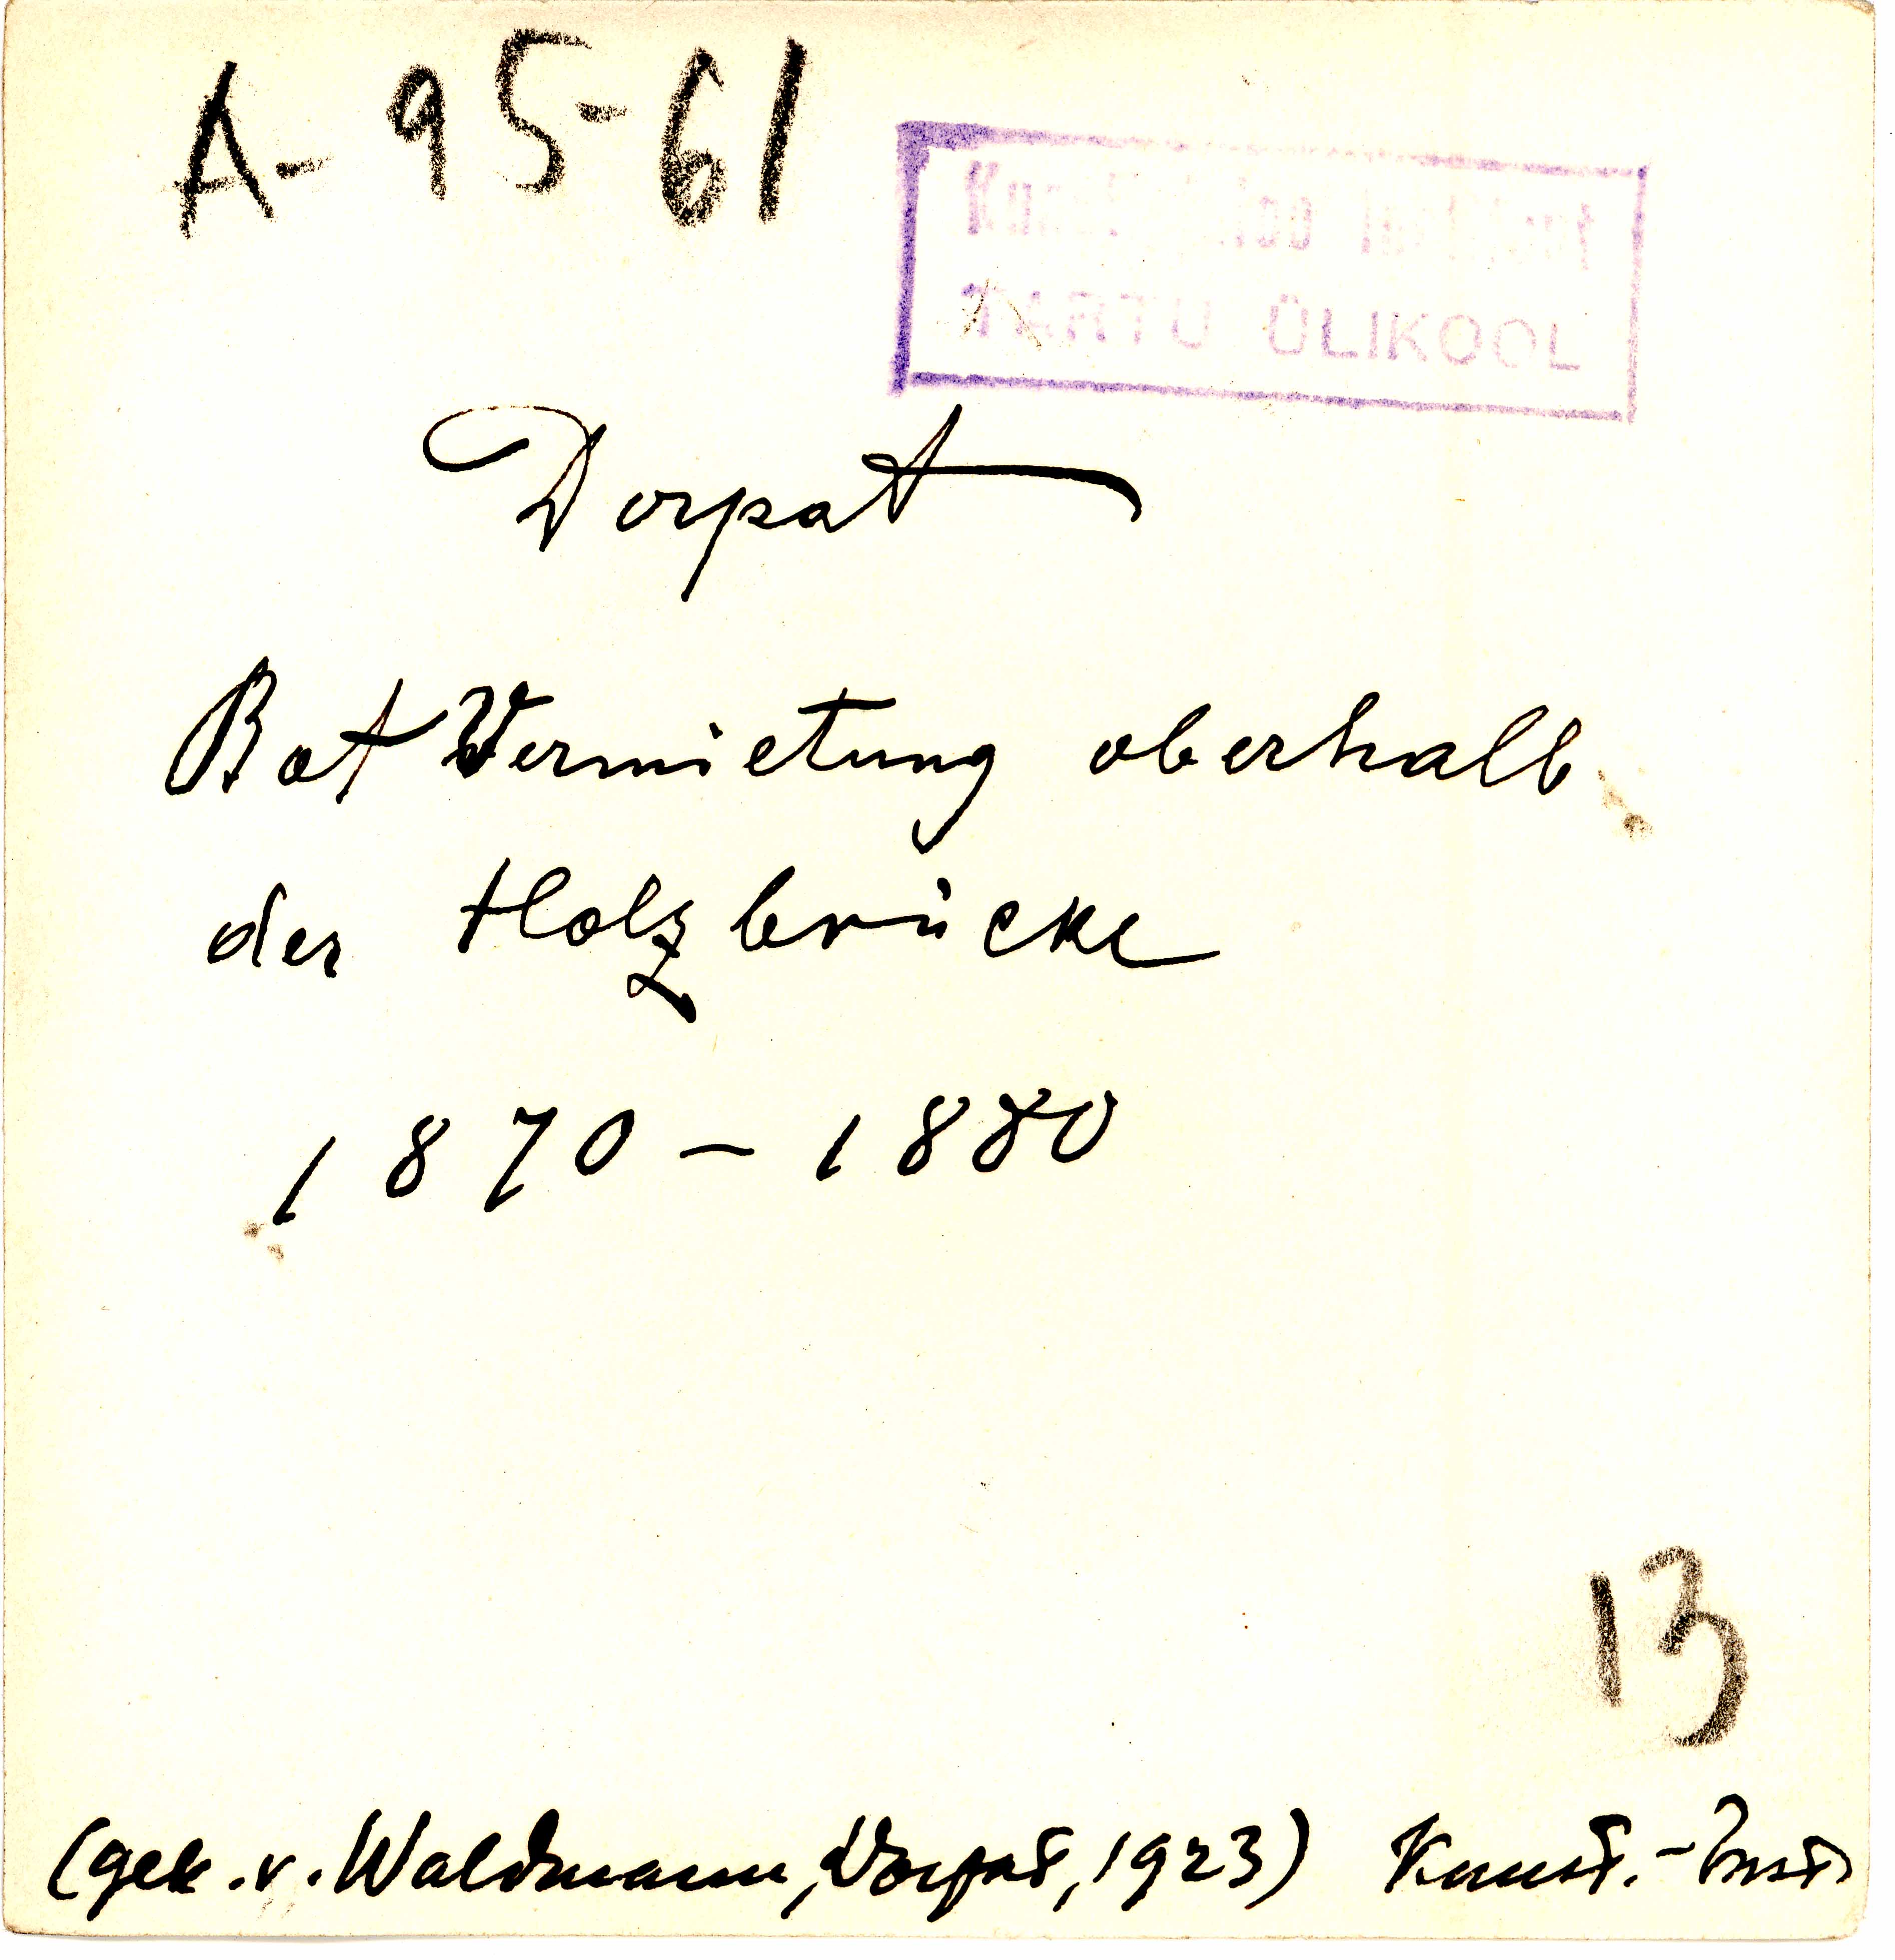 A-95-61
Kunstiajaloo Instituut
TARTU ÜLIKOOL
Dorpat
Bot Vermietung oberhalb
der Holzbrücke
1870-1880
13
(gek. v. Waldmann, Dorpat, 1923) Kunst.-Inst.